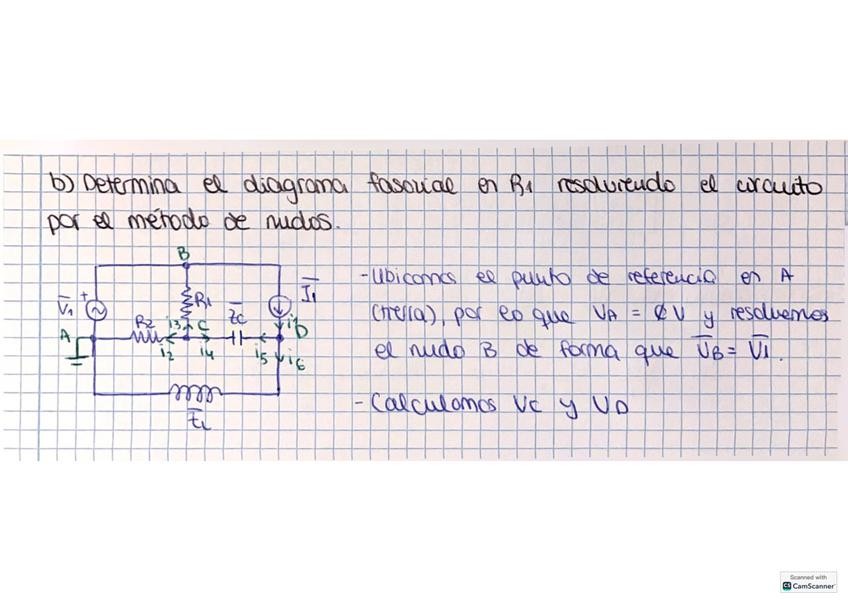 b) Determina el diagrama fasorial en R1 resolviendo el circuito
por el método de nudos.
B
V1
+
R1
I1
Zc
A
R2
i3
C
i1
D
i2
i4
i5
i6
ZL
-Ubicamos el punto de referencia en A
(tierra), por lo que VA = ØV y resolvemos
el nudo B de forma que VB = V1.
-Calculamos VC y VD
Scanned with
CS CamScanner